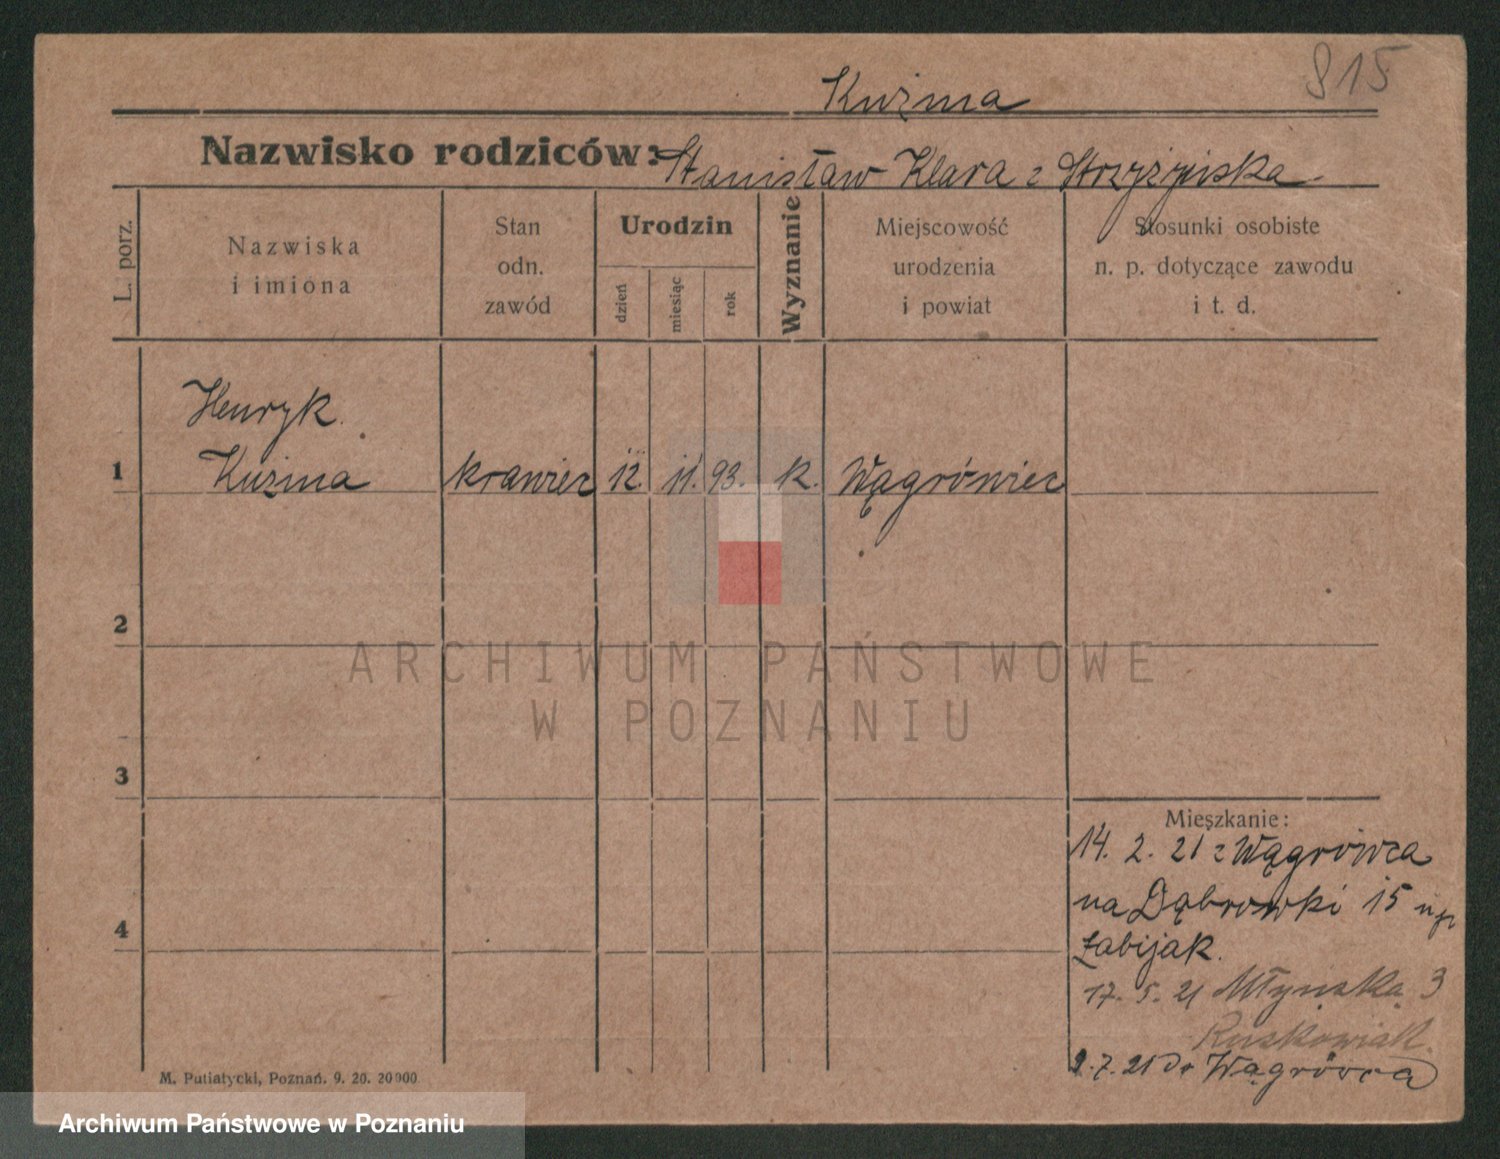 815
Kuźma
Nazwisko rodziców: Stanisław Klara z Strzyżyńska
L. porz.
Nazwiska
i imiona
Stan
odn.
zawód
Urodzin
dzień
miesiąc
rok
Wyznanie
Miejscowość
urodzenia
i powiat
Stosunki osobiste
n. p. dotyczące zawodu
i t. d.
Henryk
1 Kuźma krawiec 12. 11. 93. k. Wągrówiec
2
ARCHIWUM PAŃSTWOWE
W POZNANIU
3
Mieszkanie:
14. 2. 21 z Wągrówca
na Dąbrowki 15
4
Łabijak.
17. 5. 21 Młyńska 3
Ruskowiak.
9. 7. 21 do Wągrówca
M. Putiatycki, Poznań. 9. 20. 20000
Archiwum Państwowe w Poznaniu